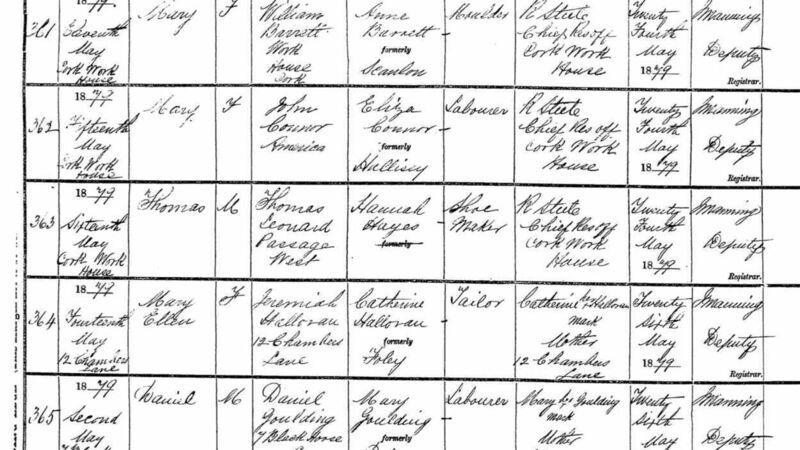 1879
361 Eleventh May Cork Work House Mary F William Barrett Work House Cork Anne Barrett formerly Scanlon Moulder R Steele Chief Res off Cork Work House Twenty Fourth May 1879 JManning Deputy Registrar.
1879
362 Fifteenth May Cork Work House Mary F John Connor America Eliza Connor formerly Hallissy Labourer R Steele Chief Res off Cork Work House Twenty Fourth May 1879 JManning Deputy Registrar.
1879
363 Sixteenth May Cork Work House Thomas M Thomas Leonard Passage West Hannah Hayes formerly Shoe Maker R Steele Chief Res off Cork Work House Twenty Fourth May 1879 JManning Deputy Registrar.
1879
364 Fourteenth May 12 Chambers Lane Mary Ellen F Jeremiah Halloran 12 Chambers Lane Catherine Halloran formerly Foley Tailor Catherine her Halloran mark Mother 12 Chambers Lane Twenty Sixth May 1879 JManning Deputy Registrar.
1879
365 Second May Daniel M Daniel Goulding 7 Black Horse Mary Goulding formerly Labourer Mary her Goulding mark Mother Twenty Sixth May JManning Deputy